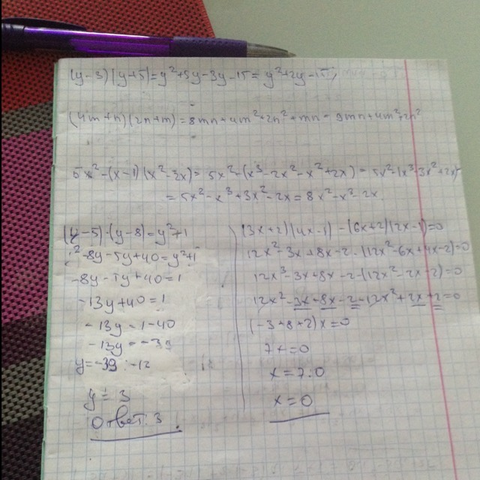 (y-3)(y+5)=y²+5y-3y-15=y²+2y-15;
(4m+n)(2n+m)=8mn+4m²+2n²+mn=9mn+4m²+2n²
5x²-(x-1)(x²-3x)=5x²-(x³-2x²-x²+2x)=5x²-(x³-3x²+2x)
=5x²-x³+3x²-2x=8x²-x³-2x
(y-5)(y-8)=y²+1
y²-8y-5y+40=y²+1
-8y-5y+40=1
-13y+40=1
-13y=1-40
-13y=-39
y=-39:-12
y=3
Ответ 3.
(3x+2)(4x-1)-(6x+2)(2x-1)=0
12x²-3x+8x-2-(12x²-6x+4x-2)=0
12x²-3x+8x-2-(12x²-2x-2)=0
12x²-3x+8x-2-12x²+2x+2=0
(-3+8+2)x=0
7x=0
x=7:0
x=0